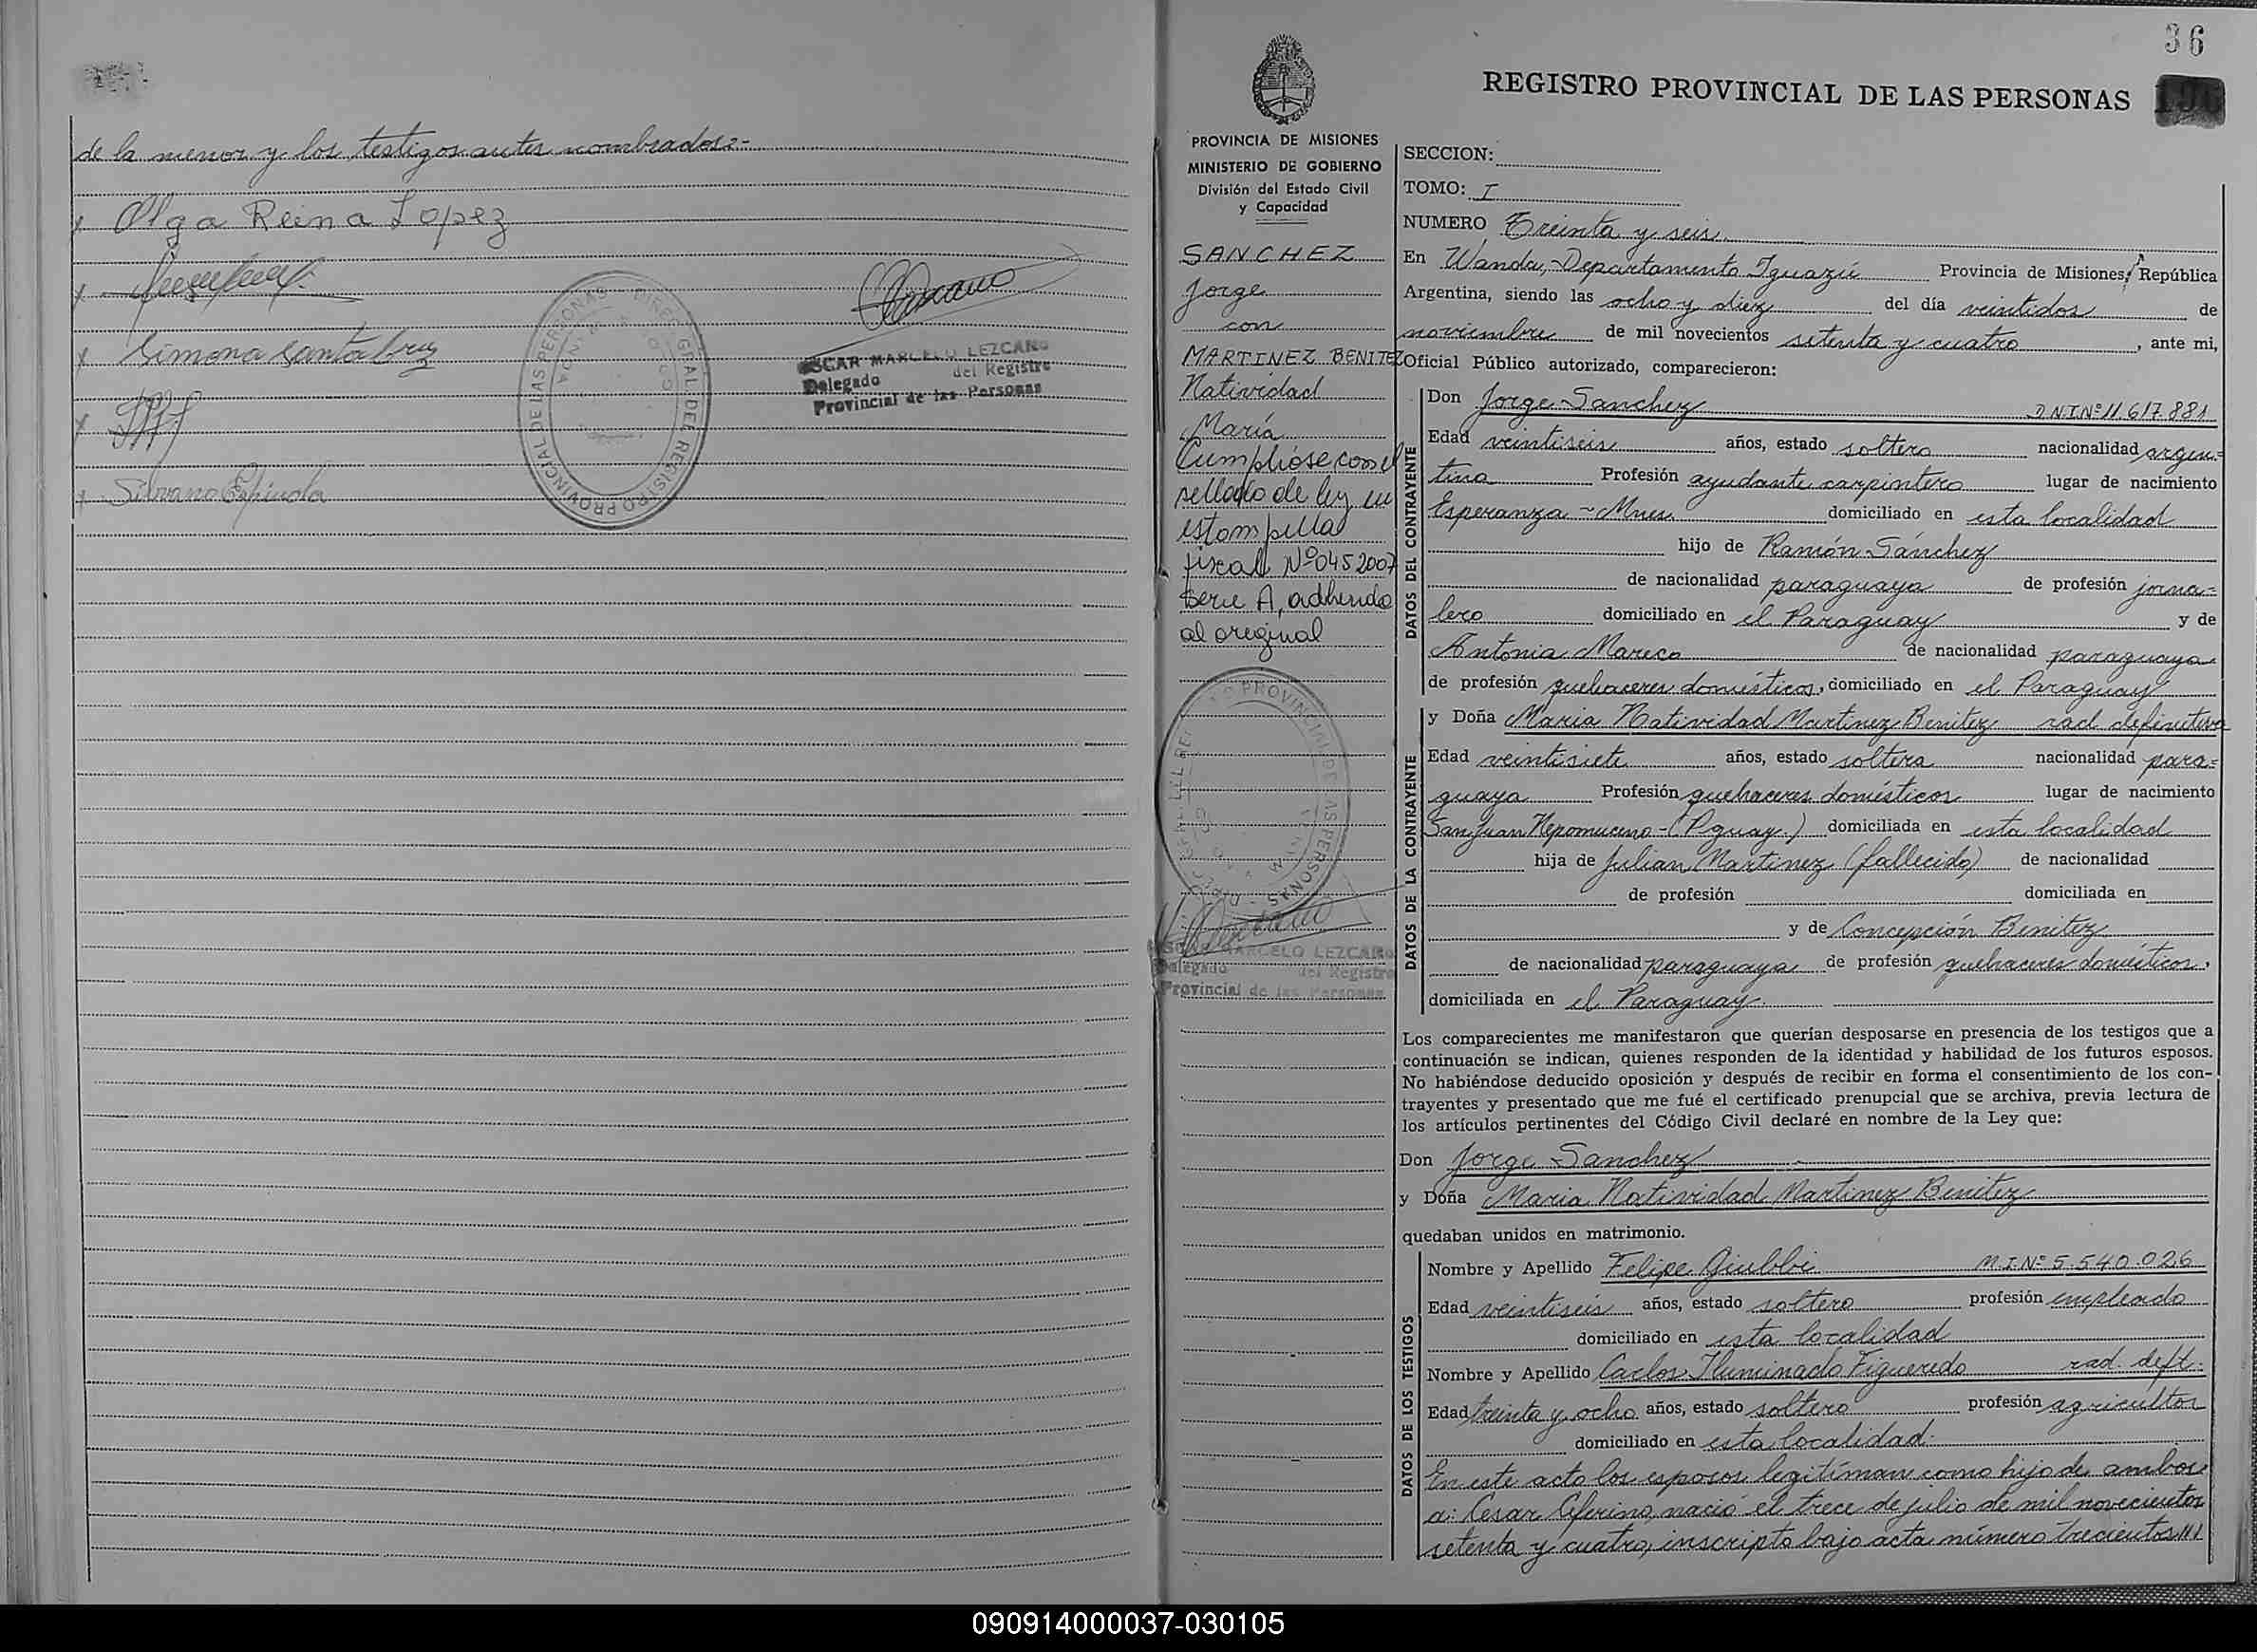 de la menor y los testigos antes nombrados:-
x Olga Reina Lopez
x
x Simona Santa Cruz
x
x Silvano Espinola
OSCAR MARCELO LEZCANO
Delegado del Registro
Provincial de las Personas
DIREC. GRAL DEL REGISTRO PROVINCIAL DE LAS PERSONAS
36
REGISTRO PROVINCIAL DE LAS PERSONAS
PROVINCIA DE MISIONES
MINISTERIO DE GOBIERNO
División del Estado Civil
y Capacidad
SANCHEZ
Jorge
con
MARTINEZ BENITEZ
Natividad
María
Cumpliose con el
sellado de ley en
estampilla
fiscal Nº 0452007
Serie A, adherida
al original
MARCELO LEZCANO
Delegado del Registro
Provincial de las Personas
SECCION:
TOMO: I
NUMERO Treinta y seis
En Wanda,-Departamento Iguazú Provincia de Misiones, República
Argentina, siendo las ocho y diez del día veintidos de
noviembre de mil novecientos setenta y cuatro, ante mi,
Oficial Público autorizado, comparecieron:
DATOS DEL CONTRAYENTE
Don Jorge Sanchez D N I Nº 11.617.881
Edad veintiseis años, estado soltero nacionalidad argen=
tina Profesión ayudante carpintero lugar de nacimiento
Esperanza - Mnes. domiciliado en esta localidad
hijo de Ramón Sánchez
de nacionalidad paraguaya de profesión jorna=
lero domiciliado en el Paraguay y de
Antonia Mareco de nacionalidad paraguaya
de profesión quehaceres domésticos, domiciliado en el Paraguay
DATOS DE LA CONTRAYENTE
y Doña Maria Natividad Martinez Benitez rad definitiva
Edad veintisiete años, estado soltera nacionalidad para=
guaya Profesión quehaceres domésticos lugar de nacimiento
San Juan Nepomuceno - (Pguay.) domiciliada en esta localidad
hija de Julian Martinez (fallecido) de nacionalidad
de profesión domiciliada en
y de Concepción Benitez
de nacionalidad paraguaya de profesión quehaceres domésticos,
domiciliada en el Paraguay
Los comparecientes me manifestaron que querían desposarse en presencia de los testigos que a
continuación se indican, quienes responden de la identidad y habilidad de los futuros esposos.
No habiéndose deducido oposición y después de recibir en forma el consentimiento de los con-
trayentes y presentado que me fué el certificado prenupcial que se archiva, previa lectura de
los artículos pertinentes del Código Civil declaré en nombre de la Ley que:
Don Jorge Sanchez
y Doña Maria Natividad Martinez Benitez
quedaban unidos en matrimonio.
DATOS DE LOS TESTIGOS
Nombre y Apellido Felipe Giubbi M.I.Nº 5.540.026
Edad veintiseis años, estado soltero profesión empleado
domiciliado en esta localidad
Nombre y Apellido Carlos Iluminado Figueredo rad. deft.
Edad treinta y ocho años, estado soltero profesión agricultor
domiciliado en esta localidad.
En este acto los esposos legitiman como hijo de ambos
a: Cesar Ceferino, nació el trece de julio de mil novecientos
setenta y cuatro, inscripto bajo acta número trecientos///
090914000037-030105